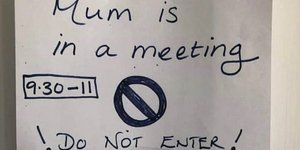 Mum is
in a meeting
9.30-11
! DO NOT ENTER!